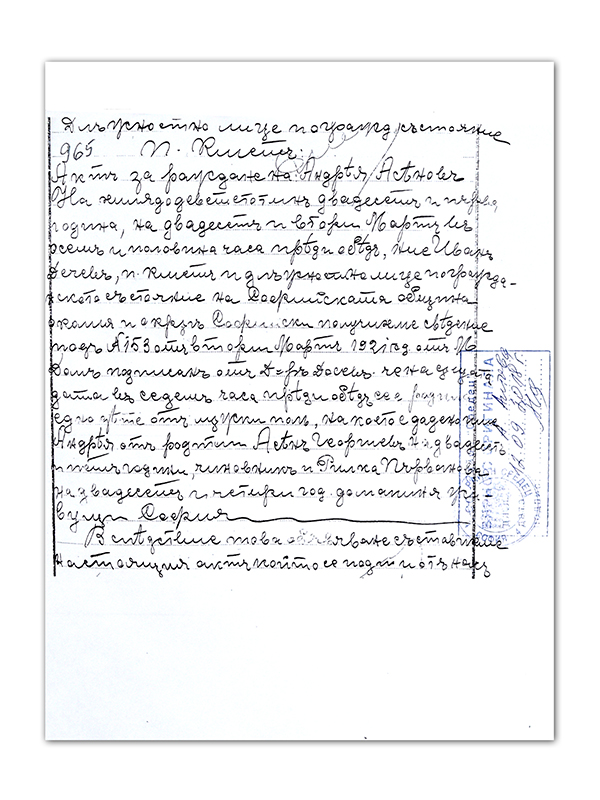 Длъжностно лице по гражд. състояние
965 П. Кметъ:
Актъ за раждане на: Андрѣя Асѣновъ
На хилядодеветстотинъ двадесетъ и първа
година, на двадесетъ и втори Мартъ въ
осемъ и половина часа прѣди обѣдъ, ние Иванъ
Дечевъ, п. кметъ и длъжностно лице по гражда-
нското състояние на Софийската община
околия и окрѫгъ Софийски получихме свѣдение
подъ №153 отъ втори Мартъ 1921 год. отъ М.
Домъ подписанъ отъ Д-ръ Досевъ че на
дата въ седемъ часа прѣди обѣдъ се е родило
едно дѣте отъ мѫжки полъ, на което е дадено име
Андрѣя отъ родители Асѣнъ Георгиевъ на двадесетъ
и петь години, чиновникъ и Рилка Първанова
на двадесетъ и четири год. домакиня
въ гр. София
Вслѣдствие това обявяване съставихме
настоящия актъ който се подписа отъ насъ
ВЯРНО С ОРИГИНАЛА
12.09.2018 г.
СРЕДЕЦ